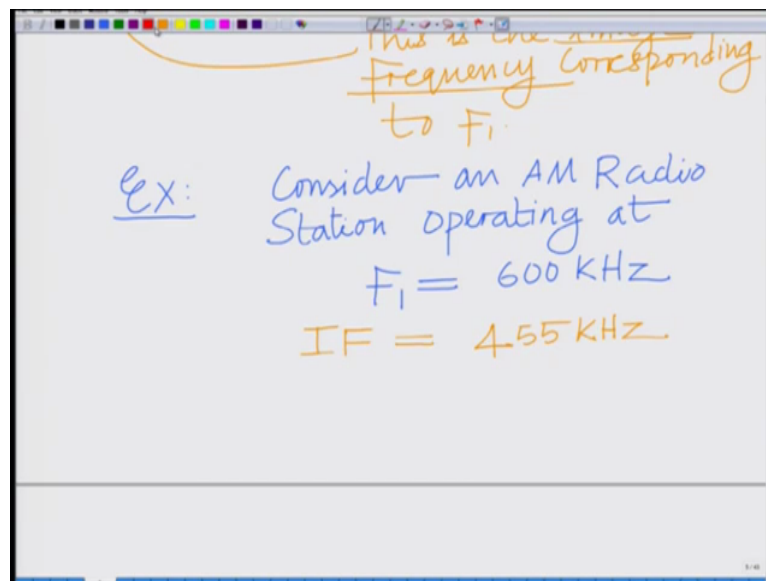 This is the Image
Frequency Corresponding
to F1.
Ex: Consider an AM Radio
Station operating at
F1 = 600 KHz
IF = 455 KHz